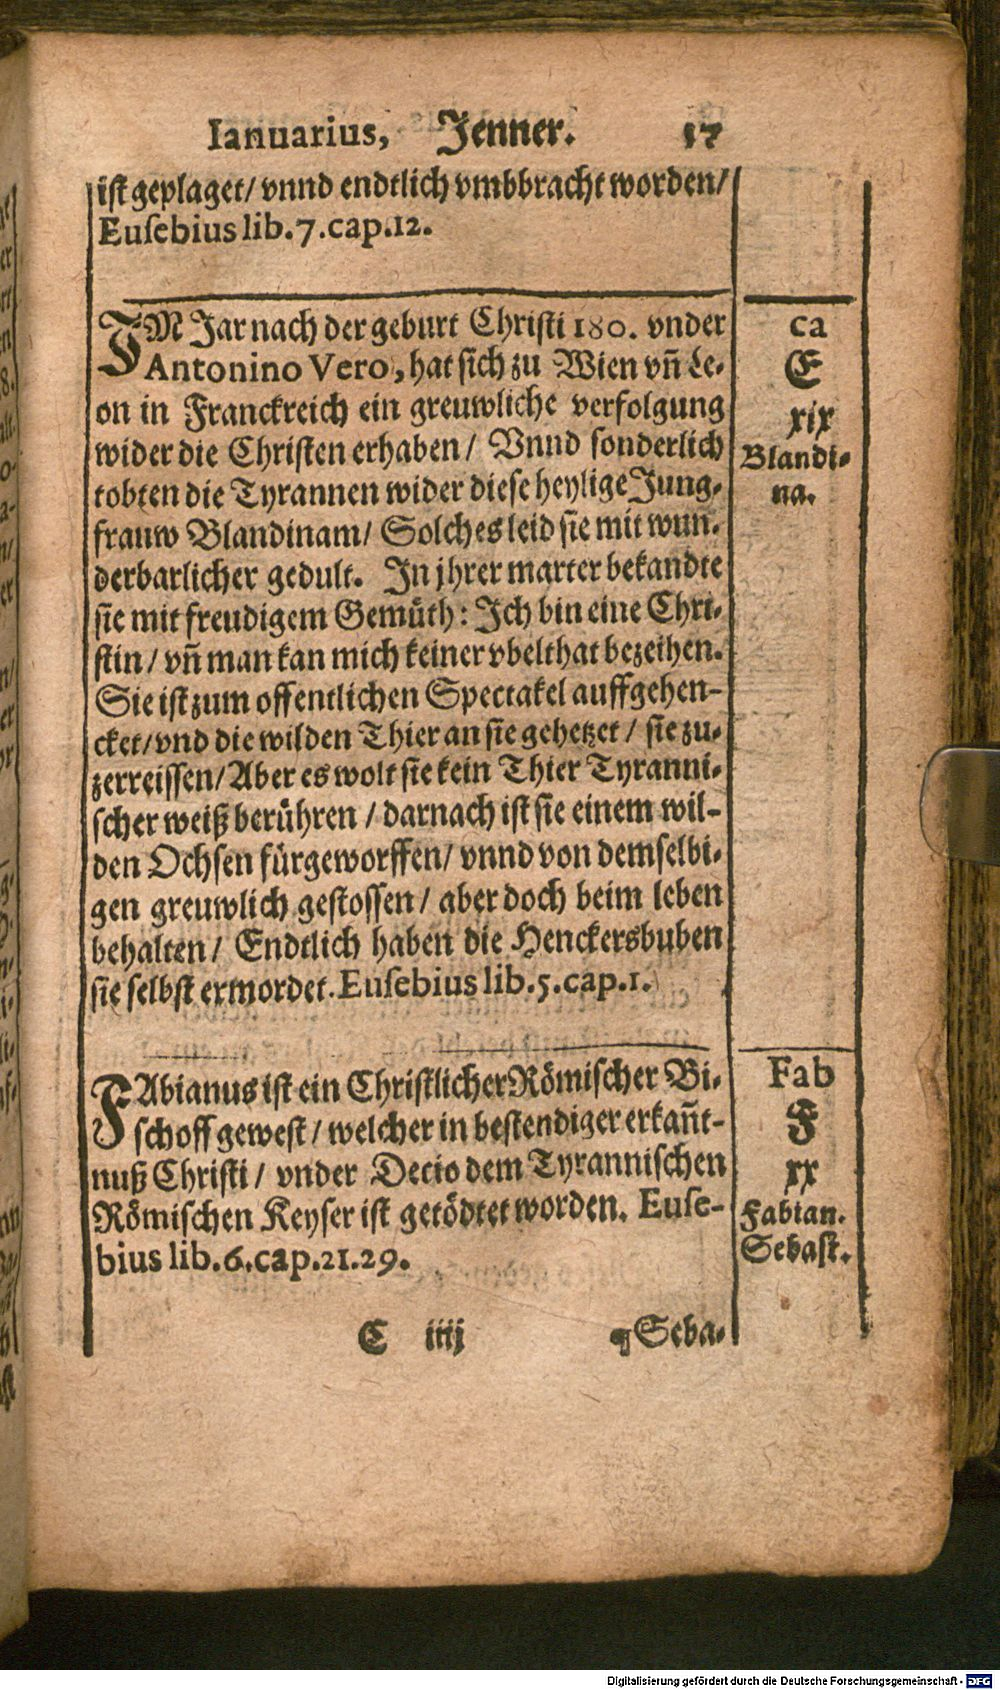 Ianuarius, Jenner. 17
ist geplaget/ vnnd endtlich vmbbracht worden/
Eusebius lib. 7. cap. 12.
IM Jar nach der geburt Christi 180. vnder
Antonino Vero, hat sich zu Wien vn̄ Le-
on in Franckreich ein greuwliche verfolgung
wider die Christen erhaben/ Vnnd sonderlich
tobten die Tyrannen wider diese heylige Jung-
frauw Blandinam/ Solches leid sie mit wun-
derbarlicher gedult. In jhrer marter bekandte
sie mit freudigem Gemüth: Ich bin eine Chri-
stin/ vn̄ man kan mich keiner vbelthat bezeihen.
Sie ist zum offentlichen Spectakel auffgehen-
cket/ vnd die wilden Thier an sie gehetzet/ sie zu-
zerreissen/ Aber es wolt sie kein Thier Tyranni-
scher weiß berühren/ darnach ist sie einem wil-
den Ochsen fürgeworffen/ vnnd von demselbi-
gen greuwlich gestossen/ aber doch beim leben
behalten/ Endtlich haben die Henckersbuben
sie selbst ermordet. Eusebius lib. 5. cap. 1.
ca
E
xix
Blandi-
na.
FAbianus ist ein Christlicher Römischer Bi-
schoff gewest/ welcher in bestendiger erkan̄t-
nuß Christi/ vnder Decio dem Tyrannischen
Römischen Keyser ist getödtet worden. Euse-
bius lib. 6. cap. 21. 29.
Fab
F
xx
Fabian.
Sebast.
C iiij ¶ Seba-
Digitalisierung gefördert durch die Deutsche Forschungsgemeinschaft - DFG